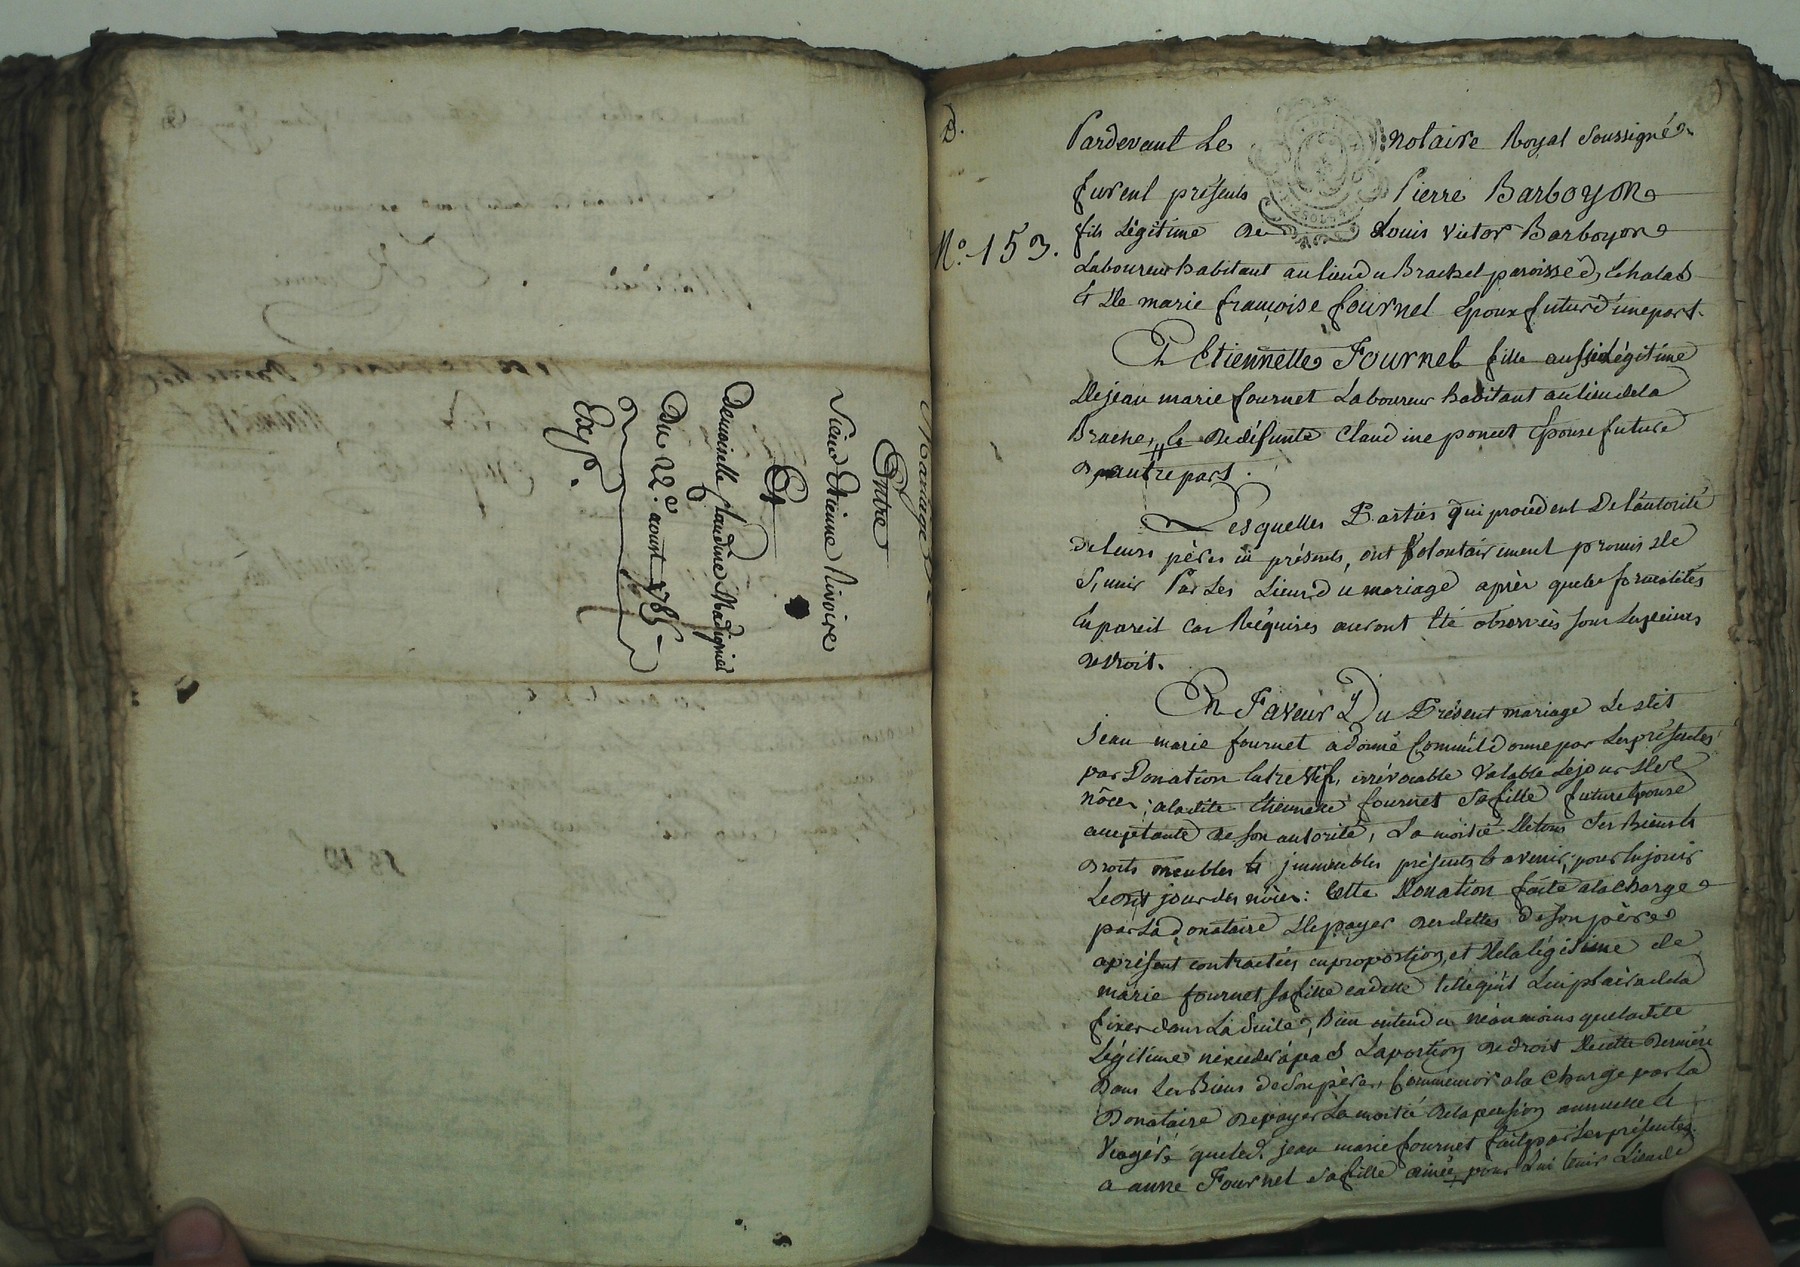 Mariage
Entre
Sieur Etienne Rivoire
Et
Demoiselle Claudine Madignier
Du 22e. aoust 1785
Exp.
N.° 153.
Pardevant Le notaire Royal Soussigné
furent présents Pierre Barboyon
fils Légitime de Louis Victor Barboyon
Laboureur habitant au lieu du Brachet paroisse de
& de marie françoise fournel Epoux futur d'une part.
Et Etiennette Fournel fille aussi Légitime
de jean marie fournel Laboureur habitant au lieu de la
& de défunte Claudine poncet Epouse future
d'autre part.
Lesquelles Parties qui procèdent de l'autorité
de leurs pères ici présents, ont volontairement promis de
s'unir Par Les Liens du mariage après que les formalités
En pareil cas Réquises auront été observées sous les peines
de droit.
En Faveur Du Présent mariage Le dit
jean marie fournel a donné Comme il donne par Les présentes
par Donation Entre vifs, irrévocable valable Le jour des
nôces, a la dite Etiennette fournel sa fille future Epouse
acceptante de son autorité, La moitié de tous ses Biens &
droits meubles & immeubles présents & avenir, pour en jouir
Le dit jour des nôces: Cette Donation faite a la charge
par La donataire de payer des dettes de son père
a présent contractées en proportion, et de la légitime de
marie fournel sa fille cadette telle qu'il Lui plaira de la
fixer dans La Suite, Bien entendu néanmoins que la dite
Légitime n'excédera pas La portion de droit de cette dernière
Dans Les Biens de son père, Comme encor a la charge par La
Donataire de payer La moitié de la pension annuelle &
viagère que led. jean marie fournel fait par Les présentes
a anne Fournel sa fille ainée pour Lui tenir Lieu de